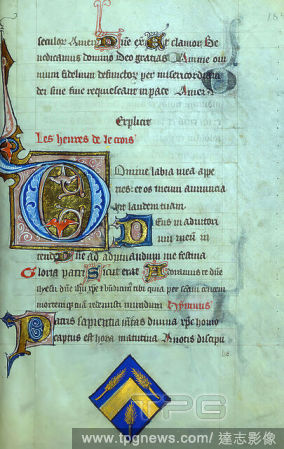 seculor Amen Dne ex Et clamor Be
nedicamus domino deo gracias Anime om
nium fidelium defunctor per misericordiam
dei sine fine requiescant in pace Amen
Explicit
Les heures de le crois
Domine labia mea ape
ries et os meum annuncia
bit laudem tuam
Deus in adiutori
um meum in
tende Dne ad adiuuandum me festina
Gloria patri Sicut erat Adoramus te dne
mortem tuam redemisti mundum Hympnus
Patris sapientia ueritas diuina xpc homo
captus est hora matutina A notis discipu
TPG
www.tpgnews.com/達志影像